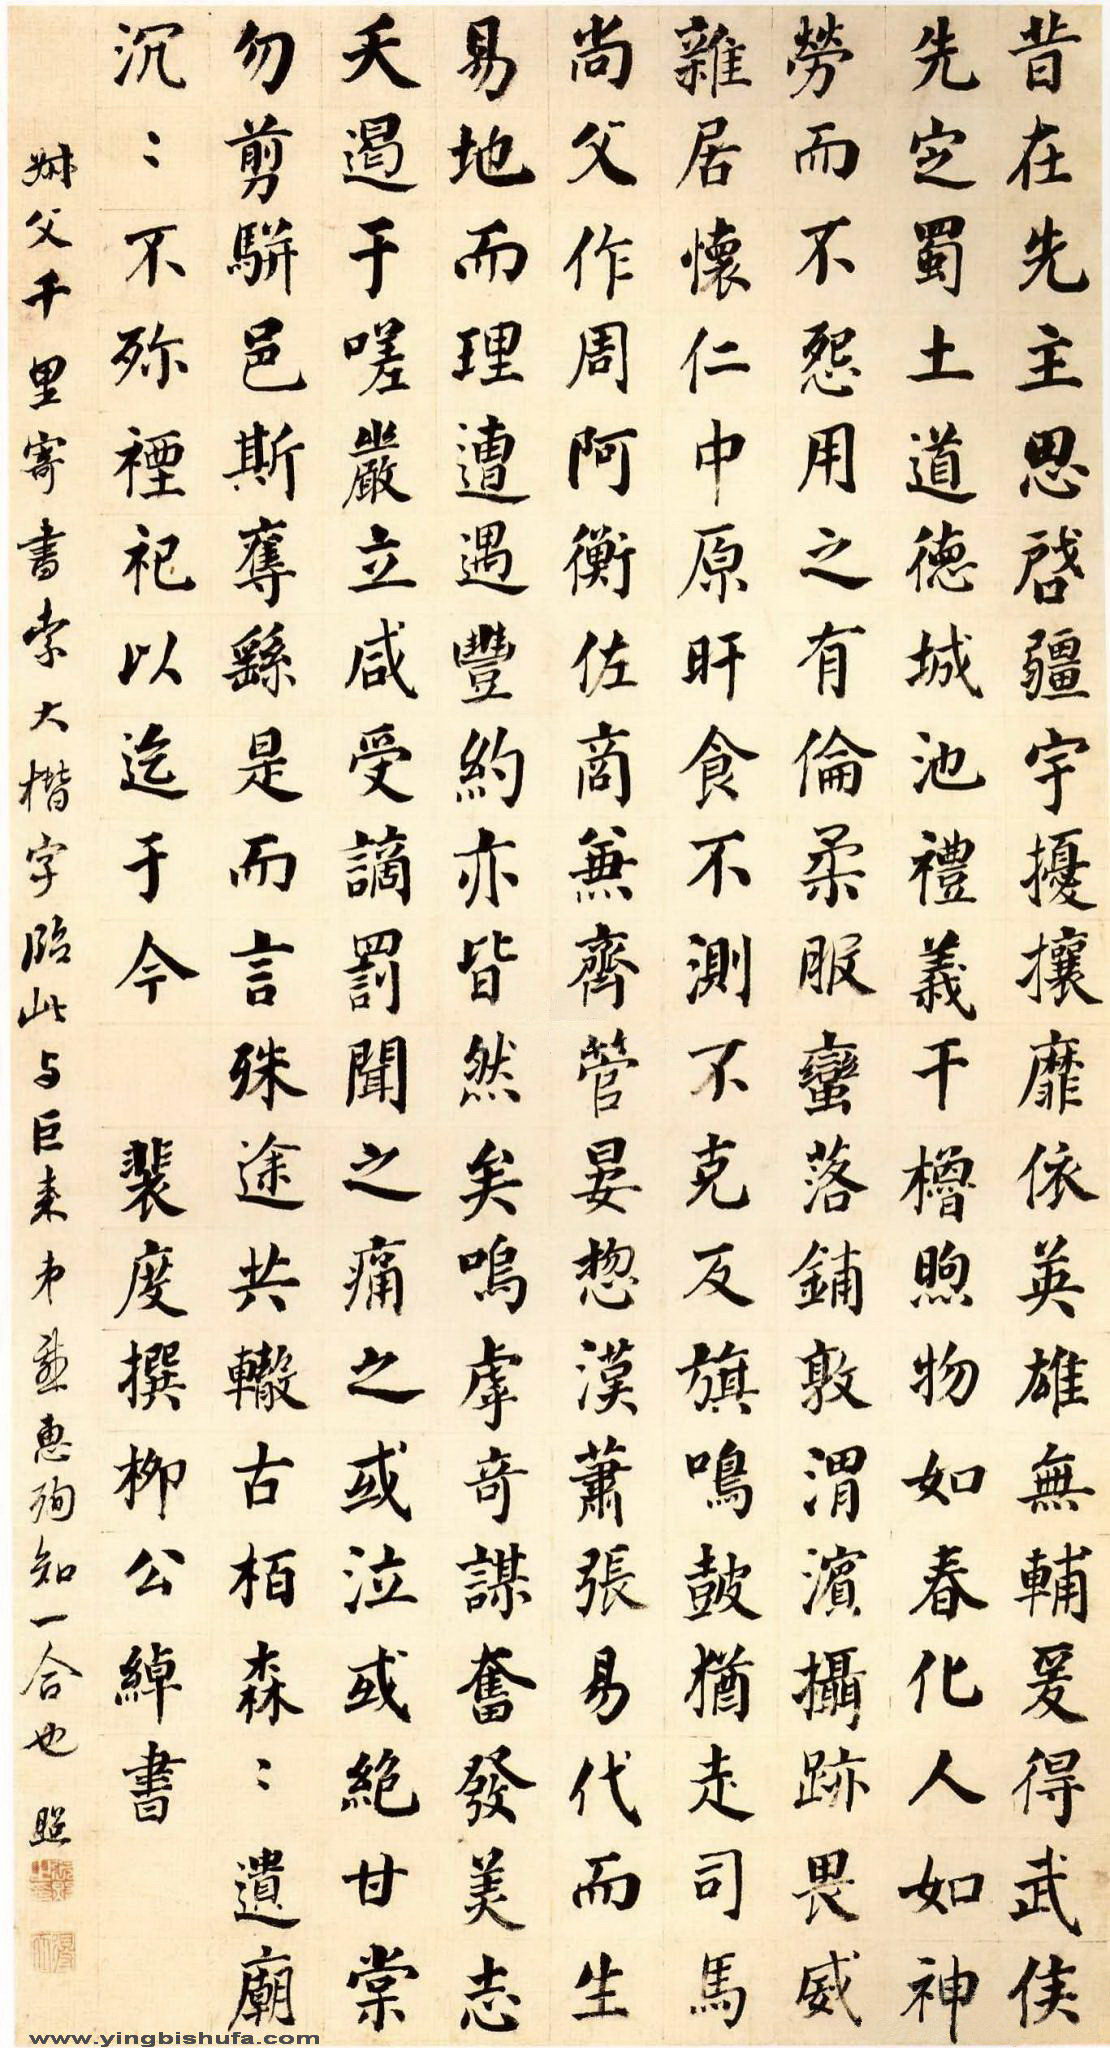 昔在先主思啓疆宇擾攘靡依英雄無輔爰得武侯
先定蜀土道德城池禮義干櫓煦物如春化人如神
勞而不怨用之有倫柔服蠻落鋪敦渭濱攝跡畏威
雜居懷仁中原旰食不測不克反旗鳴鼓猶走司馬
尚父作周阿衡佐商兼齊管晏揔漢蕭張易代而生
易地而理遭遇豐約亦皆然矣嗚虖奇謀奮發美志
夭遏于嗟嚴立咸受謫罰聞之痛之或泣或絕甘棠
勿剪駢邑斯奪繇是而言殊途共轍古栢森〻遺廟
沉〻不殄禋祀以迄于今 裴度撰柳公綽書
叔父千里寄書索大楷字臨此与巨来弟惠殉知一合也 照
www.yingbishufa.com